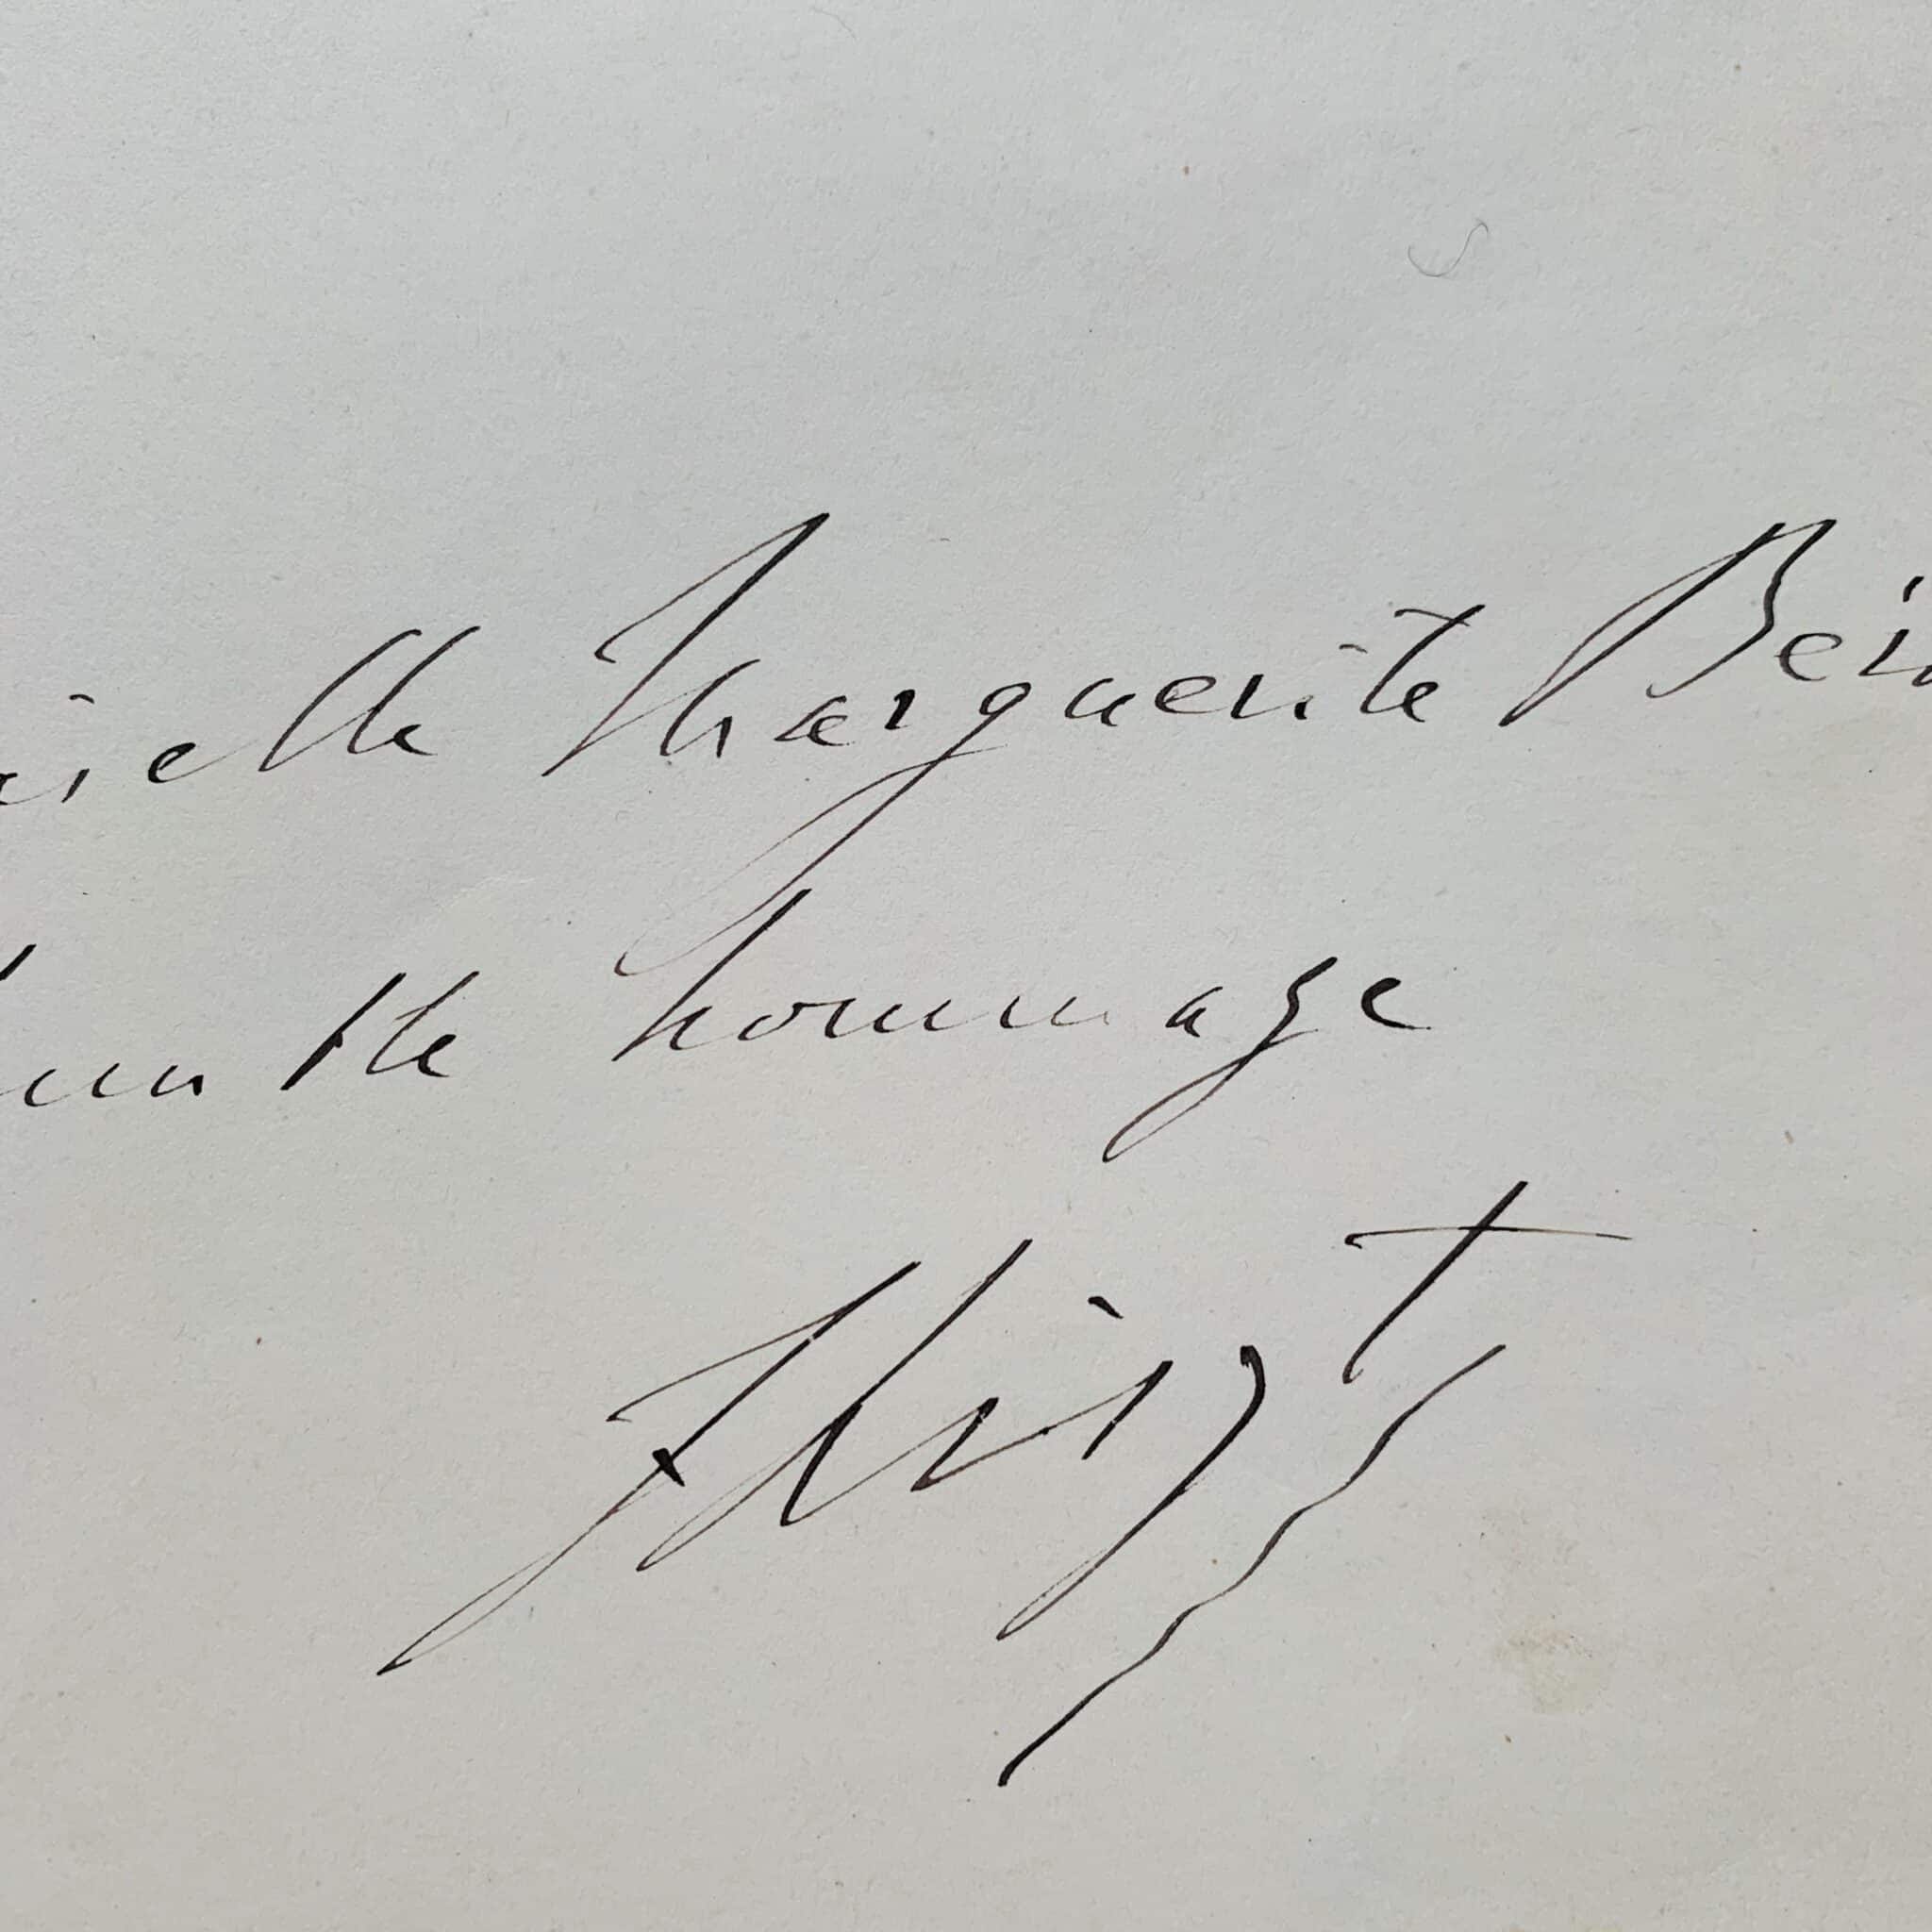 aiselle Marguerite Bei
humble hommage
FLiszt